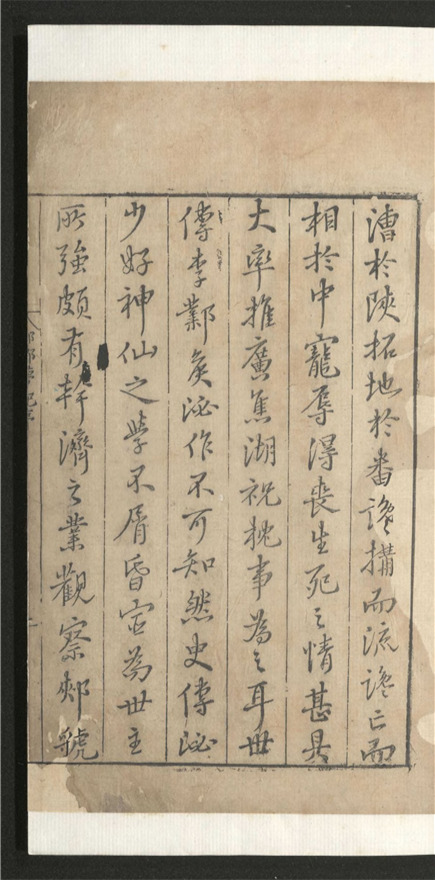 漕於陝拓地於番讒搆而流讒亡而
相於中寵辱得喪生死之情甚具
大率推廣焦湖祝枕事為之耳世
傳李鄴矦泌作不可知然史傳泌
少好神仙之學不屑昏宦為世主
所強頗有幹濟之業觀察郟虢